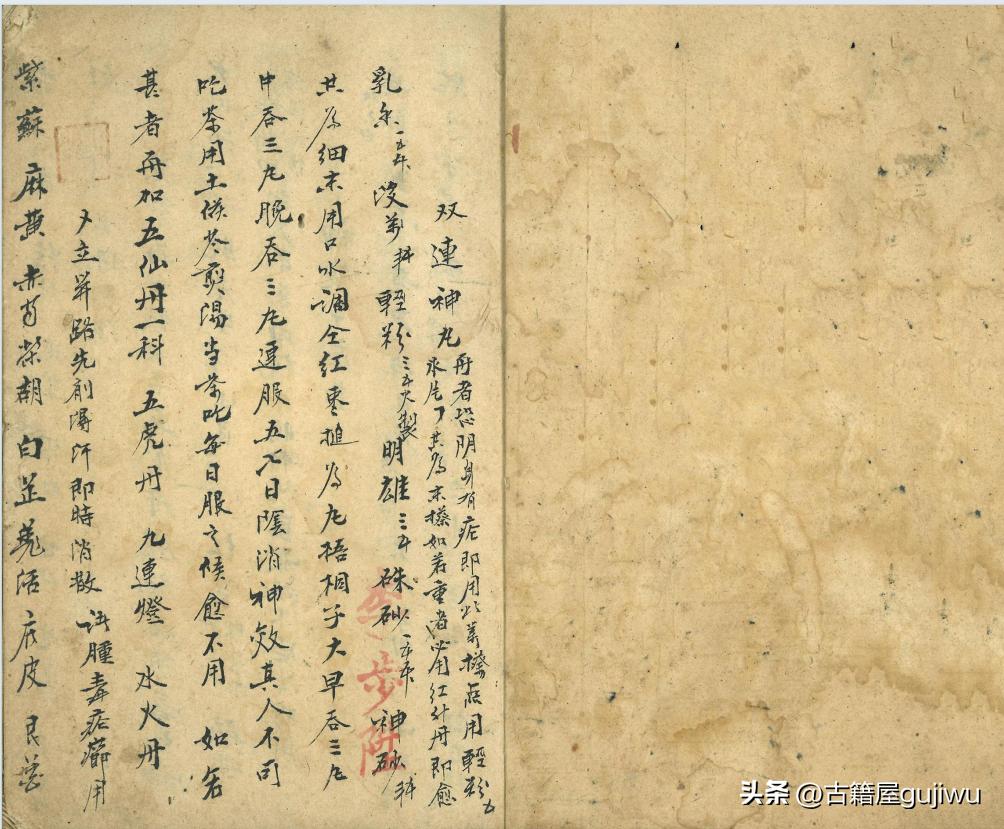 双連神丸 再者恐阴身有疮即用此薬搽 用輕粉五
氷片丁共為末搽如若重者必用红升丹即愈
乳香一五 没薬 輕粉三 製 明雄三 硃砂一五 神砂
共為細末用口水調全红枣搥為丸梧桐子大早吞三丸
中吞三丸晚吞三丸連服五七日陰消神效其人不可
吃茶用土茯苓煎湯当茶吃每日服之候愈不用 如若
甚者再加五仙丹一科 五虎丹 九連燈 水火丹
立 路先 得汗即時消散 腫毒疮癤用
紫蘇 麻黄 赤芍 柴胡 白芷 羌活 皮 良姜
李步陞
头条 @古籍屋gujiwu